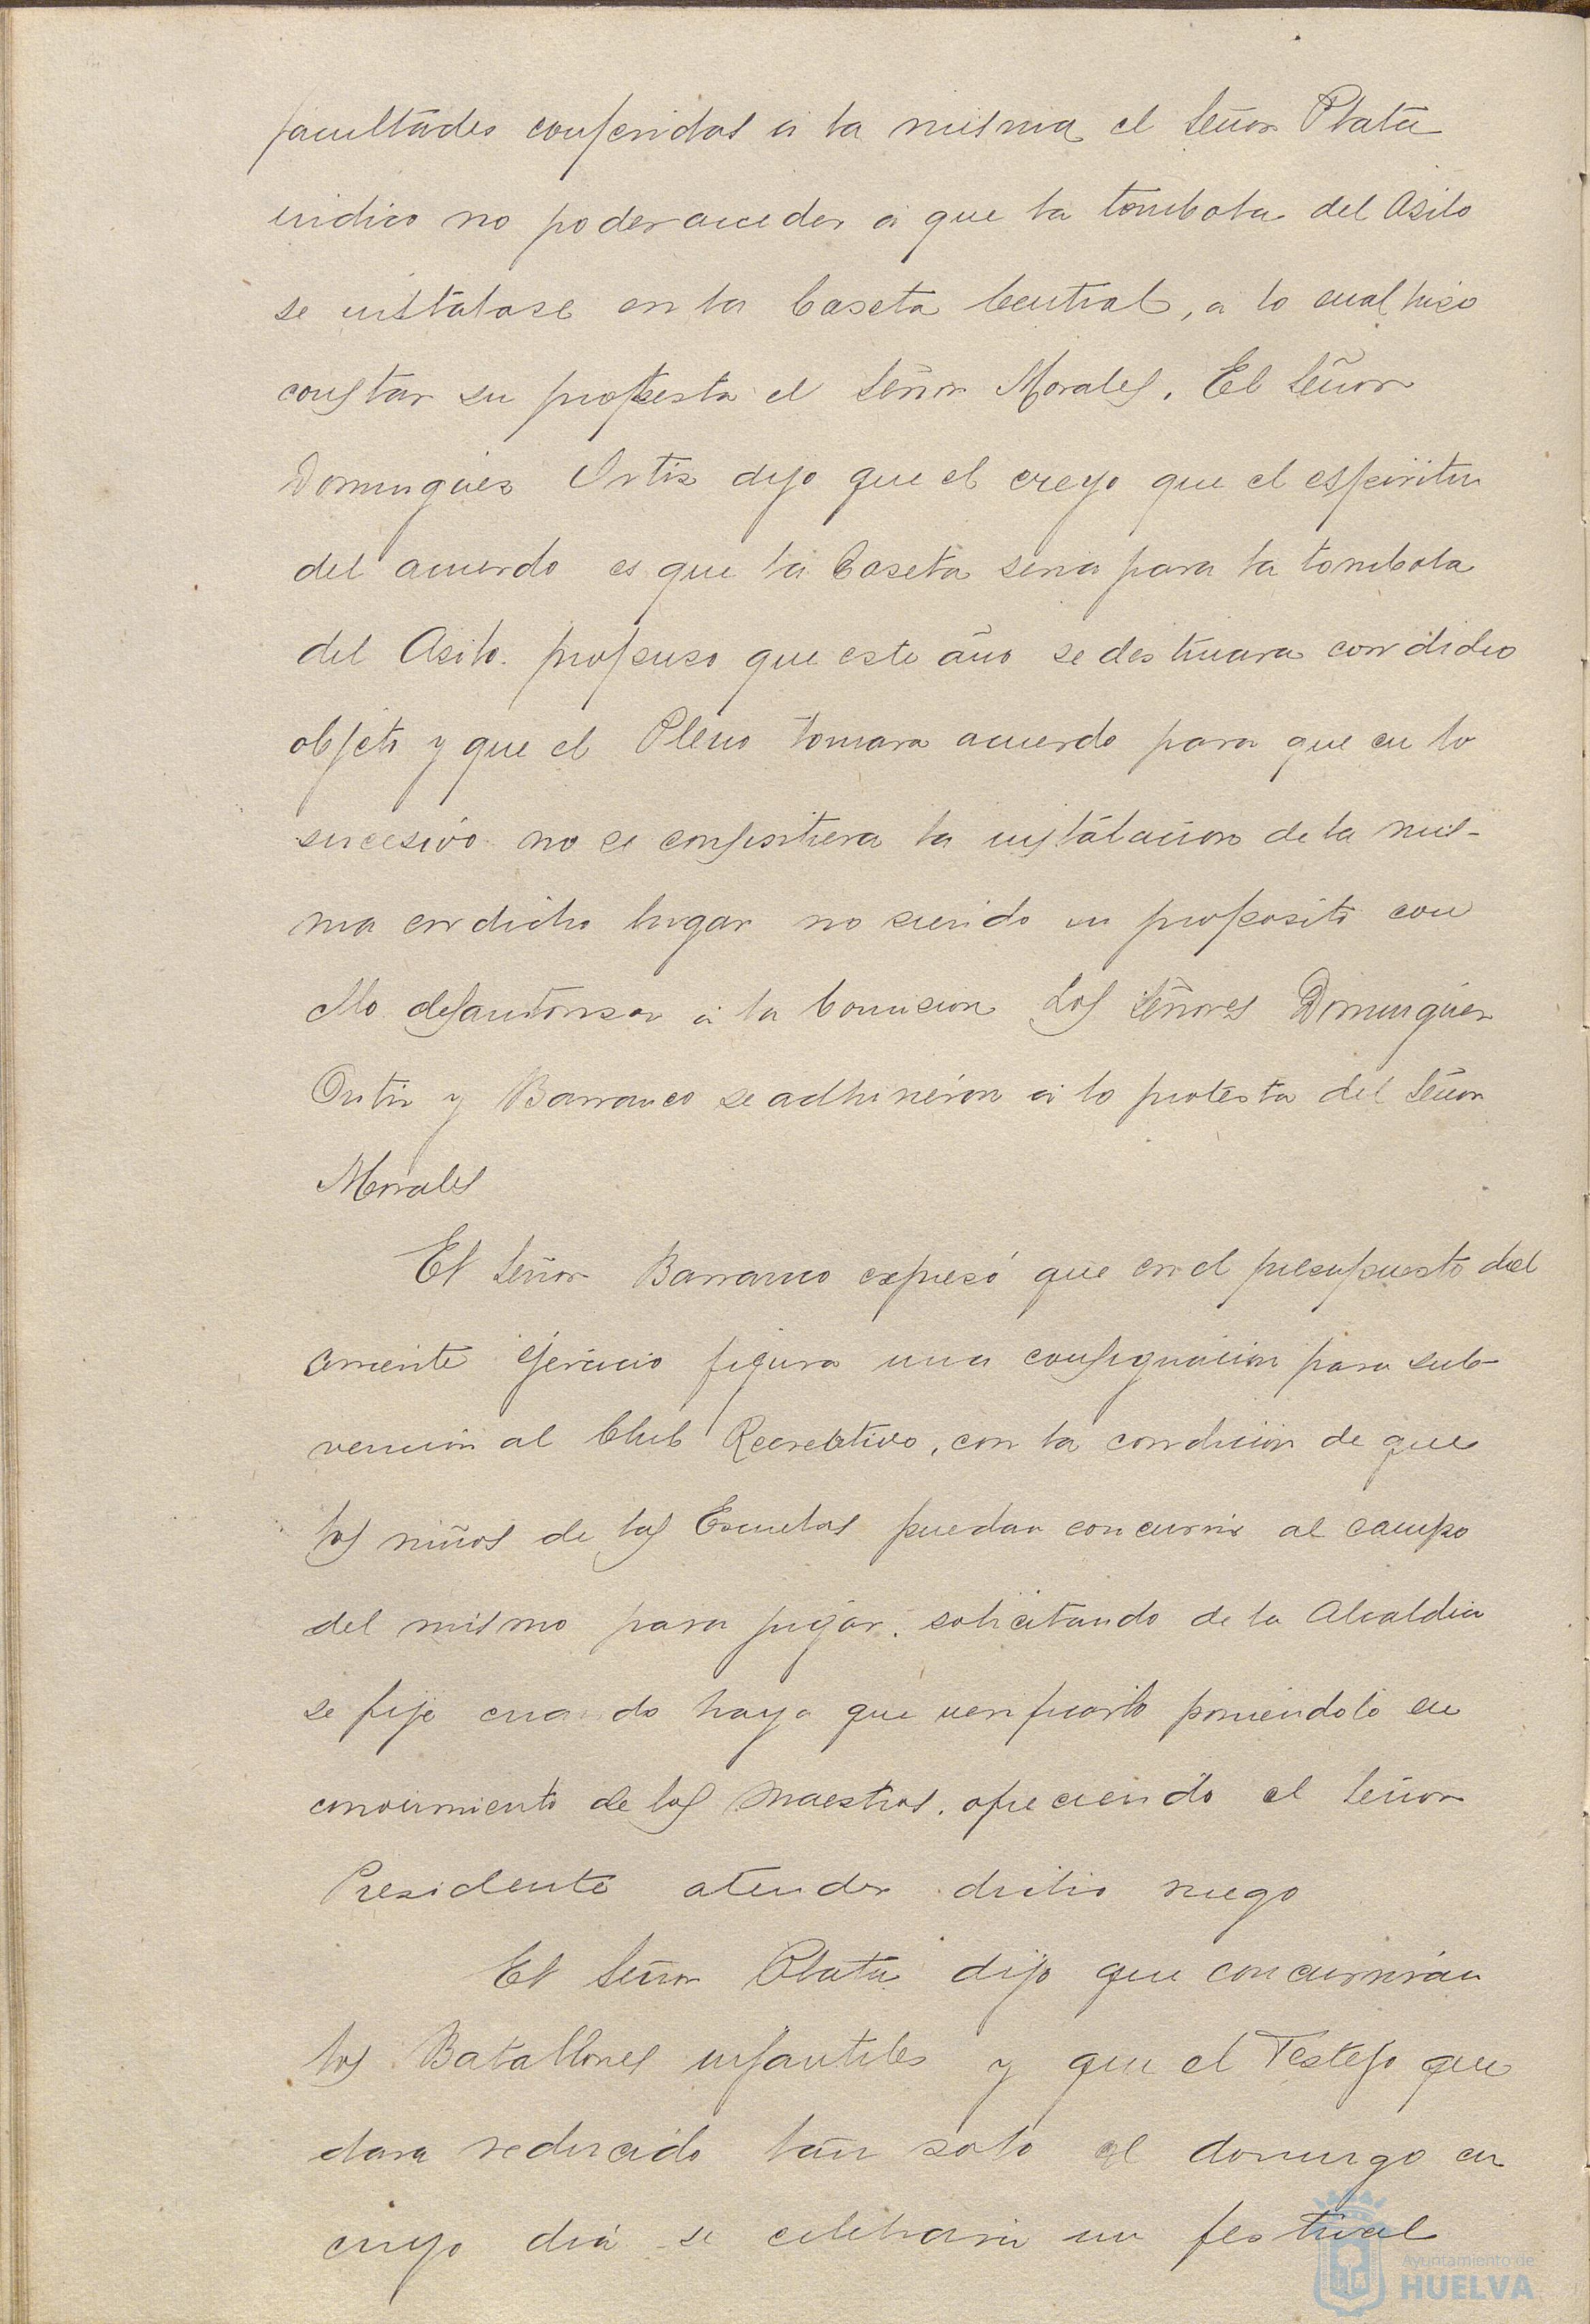 facultades conferidas a la misma el Señor Plata
indico no poder acceder a que la tombola del Asilo
se instalase en la Caseta Central, a lo cual hizo
constar su protesta el Señor Morales. El Señor
Dominguez Ortiz dijo que el creyo que el espiritu
del acuerdo es que la Caseta seria para la tombola
del Asilo. propuso que este año se destinara con dicho
objeto y que el Pleno tomara acuerdo para que en lo
sucesivo no se consintiera la instalacion de la mis-
ma en dicho lugar no siendo su proposito con
ello desautorizar a la Comision Los Señores Dominguez
Ortiz y Barranco se adhirieron a la protesta del Señor
Morales
El Señor Barranco expresó que en el presupuesto del
corriente ejercicio figura una consignacion para sub-
vencion al Club Recreativo, con la condicion de que
los niños de las Escuelas puedan concurrir al campo
del mismo para jugar, solicitando de la Alcaldia
se fije cuando haya que verificarlo poniendolo en
conocimiento de los Maestros, ofreciendo el Señor
Presidente atender dicho ruego
El Señor Plata dijo que concurrirán
los Batallones infantiles y que el Festejo que
dara reducido tan solo al domingo en
cuyo dia se celebrara un festival
Ayuntamiento de
HUELVA